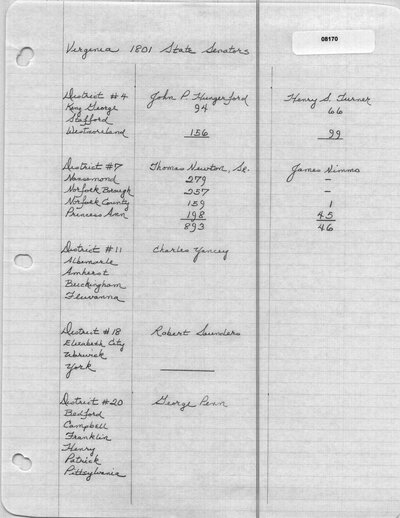 08170
Virginia 1801 State Senators
District #4 John P. Hungerford Henry S. Turner
King George 94 66
Stafford
Westmoreland 156 99
District #7 Thomas Newton, Sr. James Nimmo
Nansemond 279 -
Norfork Borough 257 -
Norfork County 159 1
Princess Ann 198 45
893 46
District #11 Charles Yancey
Albemarle
Amherst
Buckingham
Fluvanna
District #18 Robert Saunders
Elizabeth City
Warwick
York
District #20 George Penn
Bedford
Campbell
Franklin
Henry
Patrick
Pittsylvania